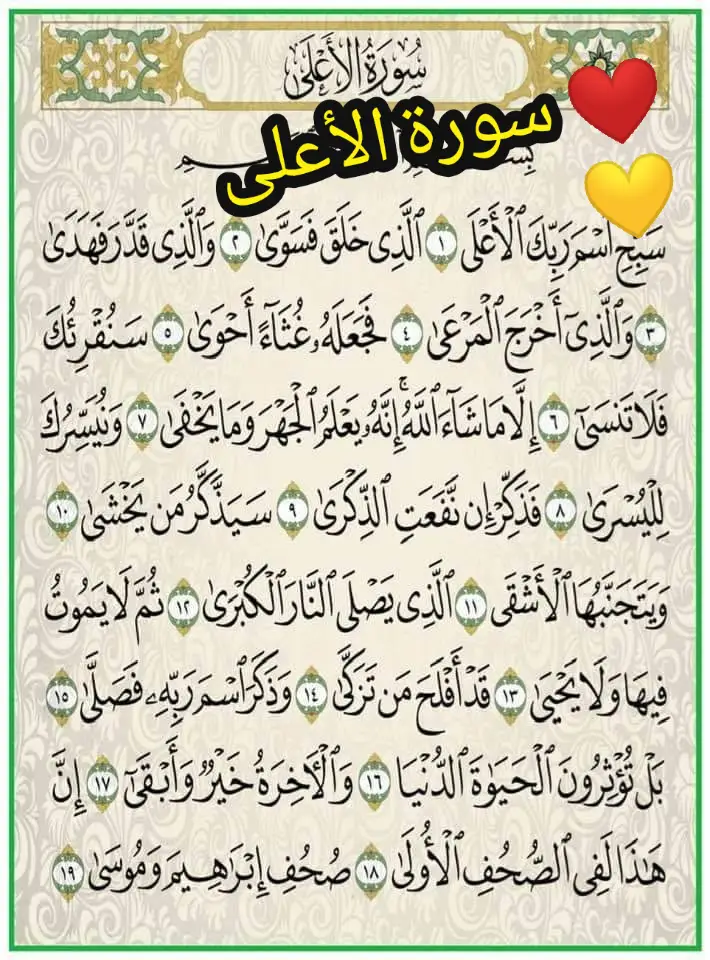 سُورَةُ الأَعْلَى
سورة الأعلى
سَبِّحِ ٱسْمَ رَبِّكَ ٱلْأَعْلَى ١ ٱلَّذِى خَلَقَ فَسَوَّىٰ ٢ وَٱلَّذِى قَدَّرَ فَهَدَىٰ
٣ وَٱلَّذِىٓ أَخْرَجَ ٱلْمَرْعَىٰ ٤ فَجَعَلَهُۥ غُثَآءً أَحْوَىٰ ٥ سَنُقْرِئُكَ
فَلَا تَنسَىٰٓ ٦ إِلَّا مَا شَآءَ ٱللَّهُ ۚ إِنَّهُۥ يَعْلَمُ ٱلْجَهْرَ وَمَا يَخْفَىٰ ٧ وَنُيَسِّرُكَ
لِلْيُسْرَىٰ ٨ فَذَكِّرْ إِن نَّفَعَتِ ٱلذِّكْرَىٰ ٩ سَيَذَّكَّرُ مَن يَخْشَىٰ ١٠
وَيَتَجَنَّبُهَا ٱلْأَشْقَى ١١ ٱلَّذِى يَصْلَى ٱلنَّارَ ٱلْكُبْرَىٰ ١٢ ثُمَّ لَا يَمُوتُ
فِيهَا وَلَا يَحْيَىٰ ١٣ قَدْ أَفْلَحَ مَن تَزَكَّىٰ ١٤ وَذَكَرَ ٱسْمَ رَبِّهِۦ فَصَلَّىٰ ١٥
بَلْ تُؤْثِرُونَ ٱلْحَيَوٰةَ ٱلدُّنْيَا ١٦ وَٱلْءَاخِرَةُ خَيْرٌ وَأَبْقَىٰٓ ١٧ إِنَّ
هَٰذَا لَفِى ٱلصُّحُفِ ٱلْأُولَىٰ ١٨ صُحُفِ إِبْرَٰهِيمَ وَمُوسَىٰ ١٩